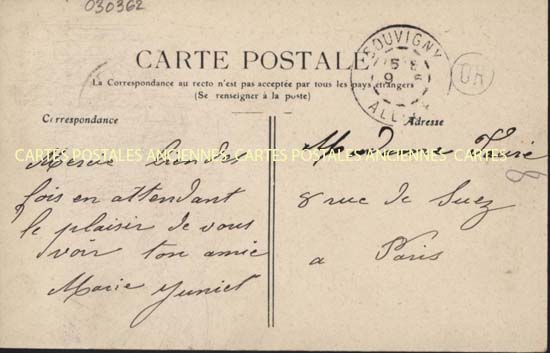 030362
CARTE POSTALE
La Correspondance au recto n'est pas acceptée par tous les pays étrangers
(Se renseigner à la poste)
SOUVIGNY
5 E
9
ALL
OR
Correspondance
Adresse
CARTES POSTALES ANCIENNES CARTES POSTALES ANCIENNES CARTES
Merci
fois en attendant
le plaisir de vous
voir ton amie
Marie
Madame
8 rue de Suez
a Paris
8